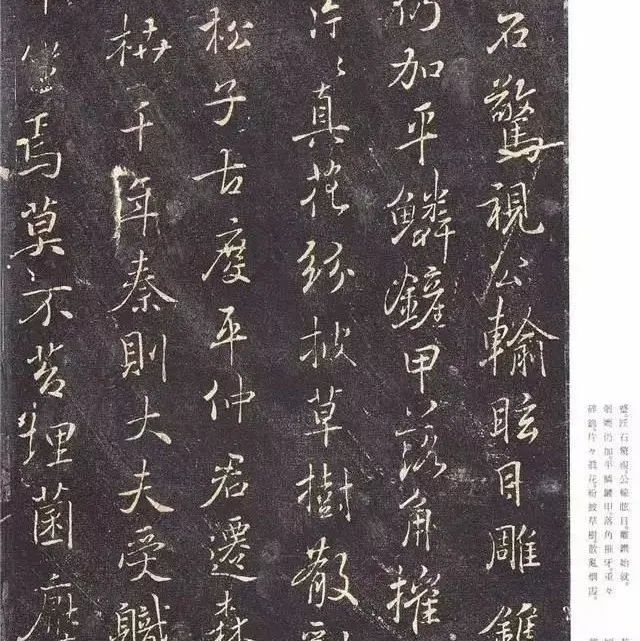 石驚視公輸眩目雕鐫
仍加平鱗鏟甲落角摧
片々真花紛披草樹散亂
松子古度平仲君遷森
枿千年秦則大夫受職
坐焉莫不苔埋菌壓
匠石驚視。公輸眩目。雕鐫始就。
剞劂仍加。平鱗鏟甲。落角摧牙。重々
碎錦。片々真花。紛披草樹。散亂烟霞。